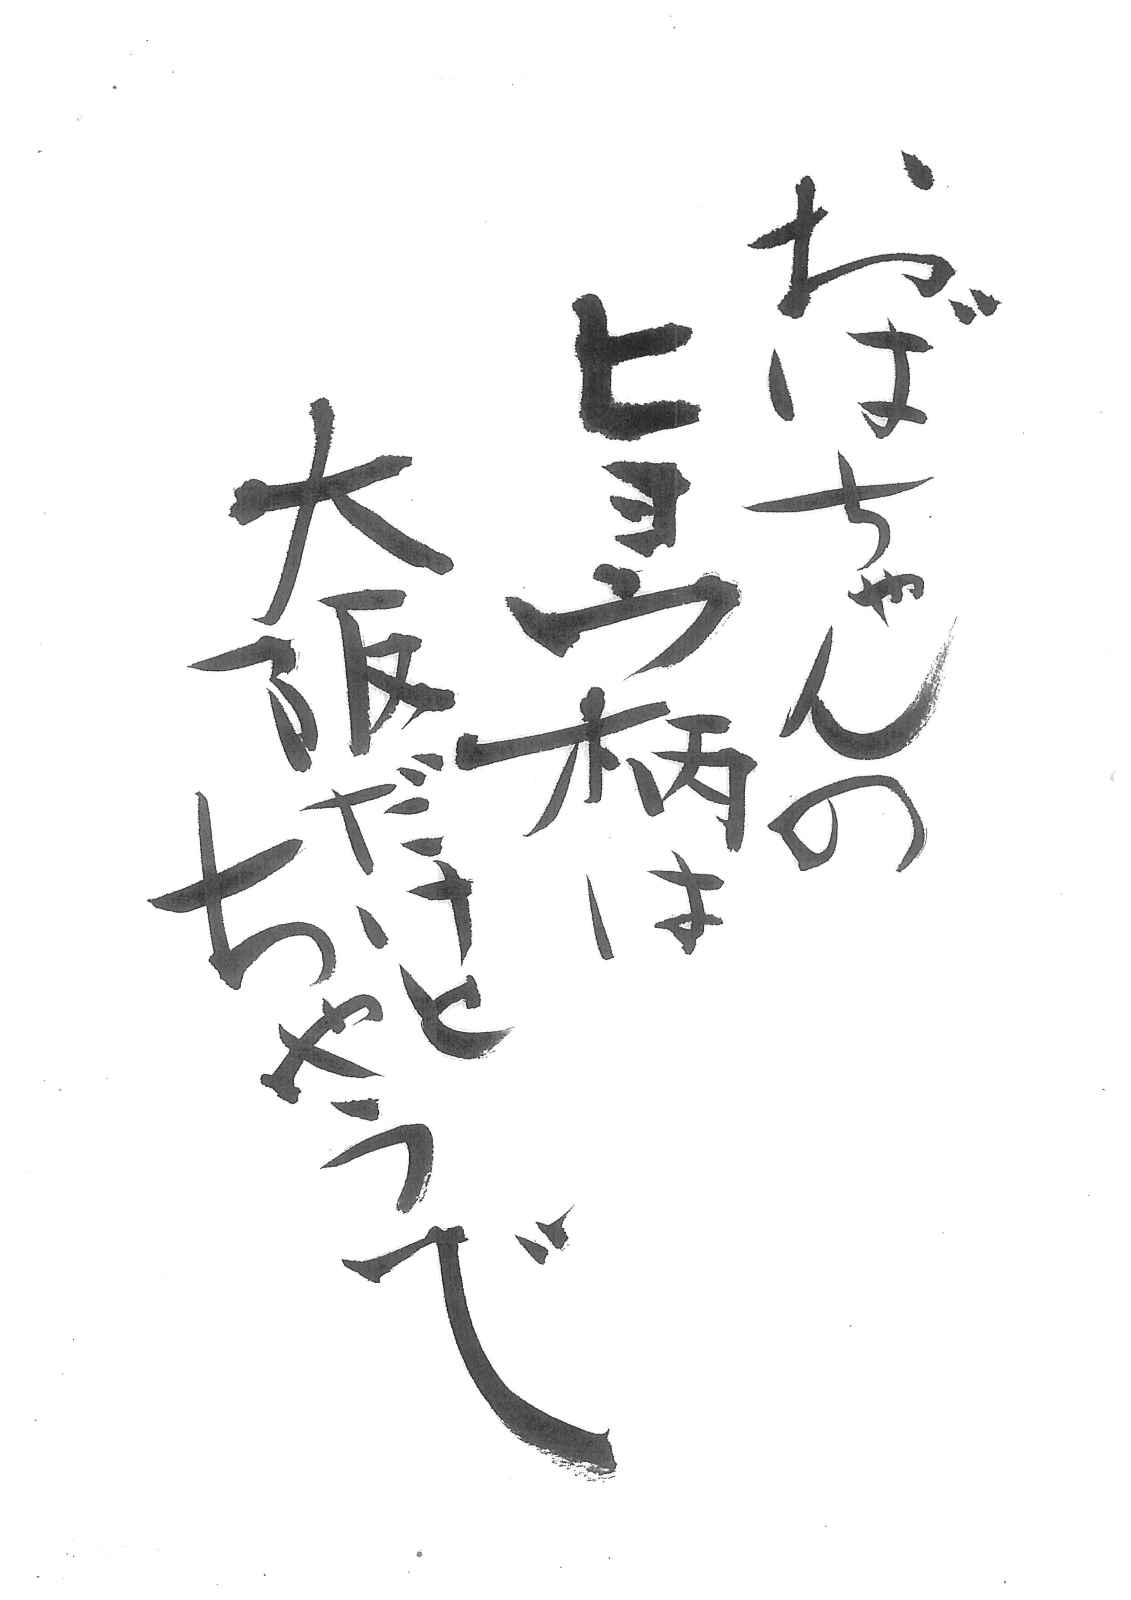 おばちゃんの
ヒョウ柄は
大阪だけと
ちゃうで